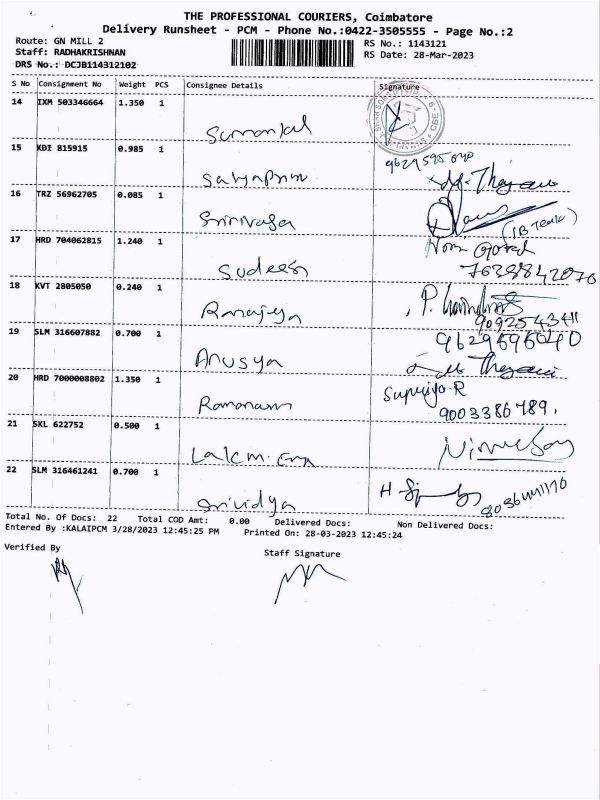 THE PROFESSIONAL COURIERS, Coimbatore
Delivery Runsheet - PCM - Phone No.:0422-3505555 - Page No.:2
Route: GN MILL 2 RS No.: 1143121
Staff: RADHAKRISHNAN RS Date: 28-Mar-2023
DRS No.: DCJB114312102
S No Consignment No Weight PCS Consignee Details Signature
14 IXM 503346664 1.350 1
15 KDI 815915 0.985 1 9629595040
Satyapriya
16 TRZ 56962705 0.085 1
Srinivasa (IB Team)
17 HRD 704062815 1.240 1
Sudeesh
18 KVT 2805050 0.240 1
9092543411
19 SLM 316607882 0.700 1 9629595040
Anusya
20 HRD 7000008802 1.350 1 Supriya-R
9003386789.
21 SKL 622752 0.500 1
22 SLM 316461241 0.700 1
Srividya
Total No. Of Docs: 22 Total COD Amt: 0.00 Delivered Docs: Non Delivered Docs:
Entered By :KALAIPCM 3/28/2023 12:45:25 PM Printed On: 28-03-2023 12:45:24
Verified By Staff Signature